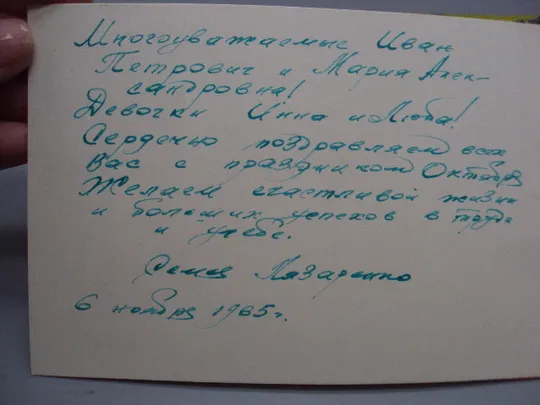 Многоуважаемые Иван
Петрович и Мария Алек-
сандровна!
Девочки Инна и Люба!
Сердечно поздравляем всех
Вас с праздником Октября
Желаем счастливой жизни
и больших успехов в труде
и учебе.
Семья Лазаренко
6 ноября 1965г.